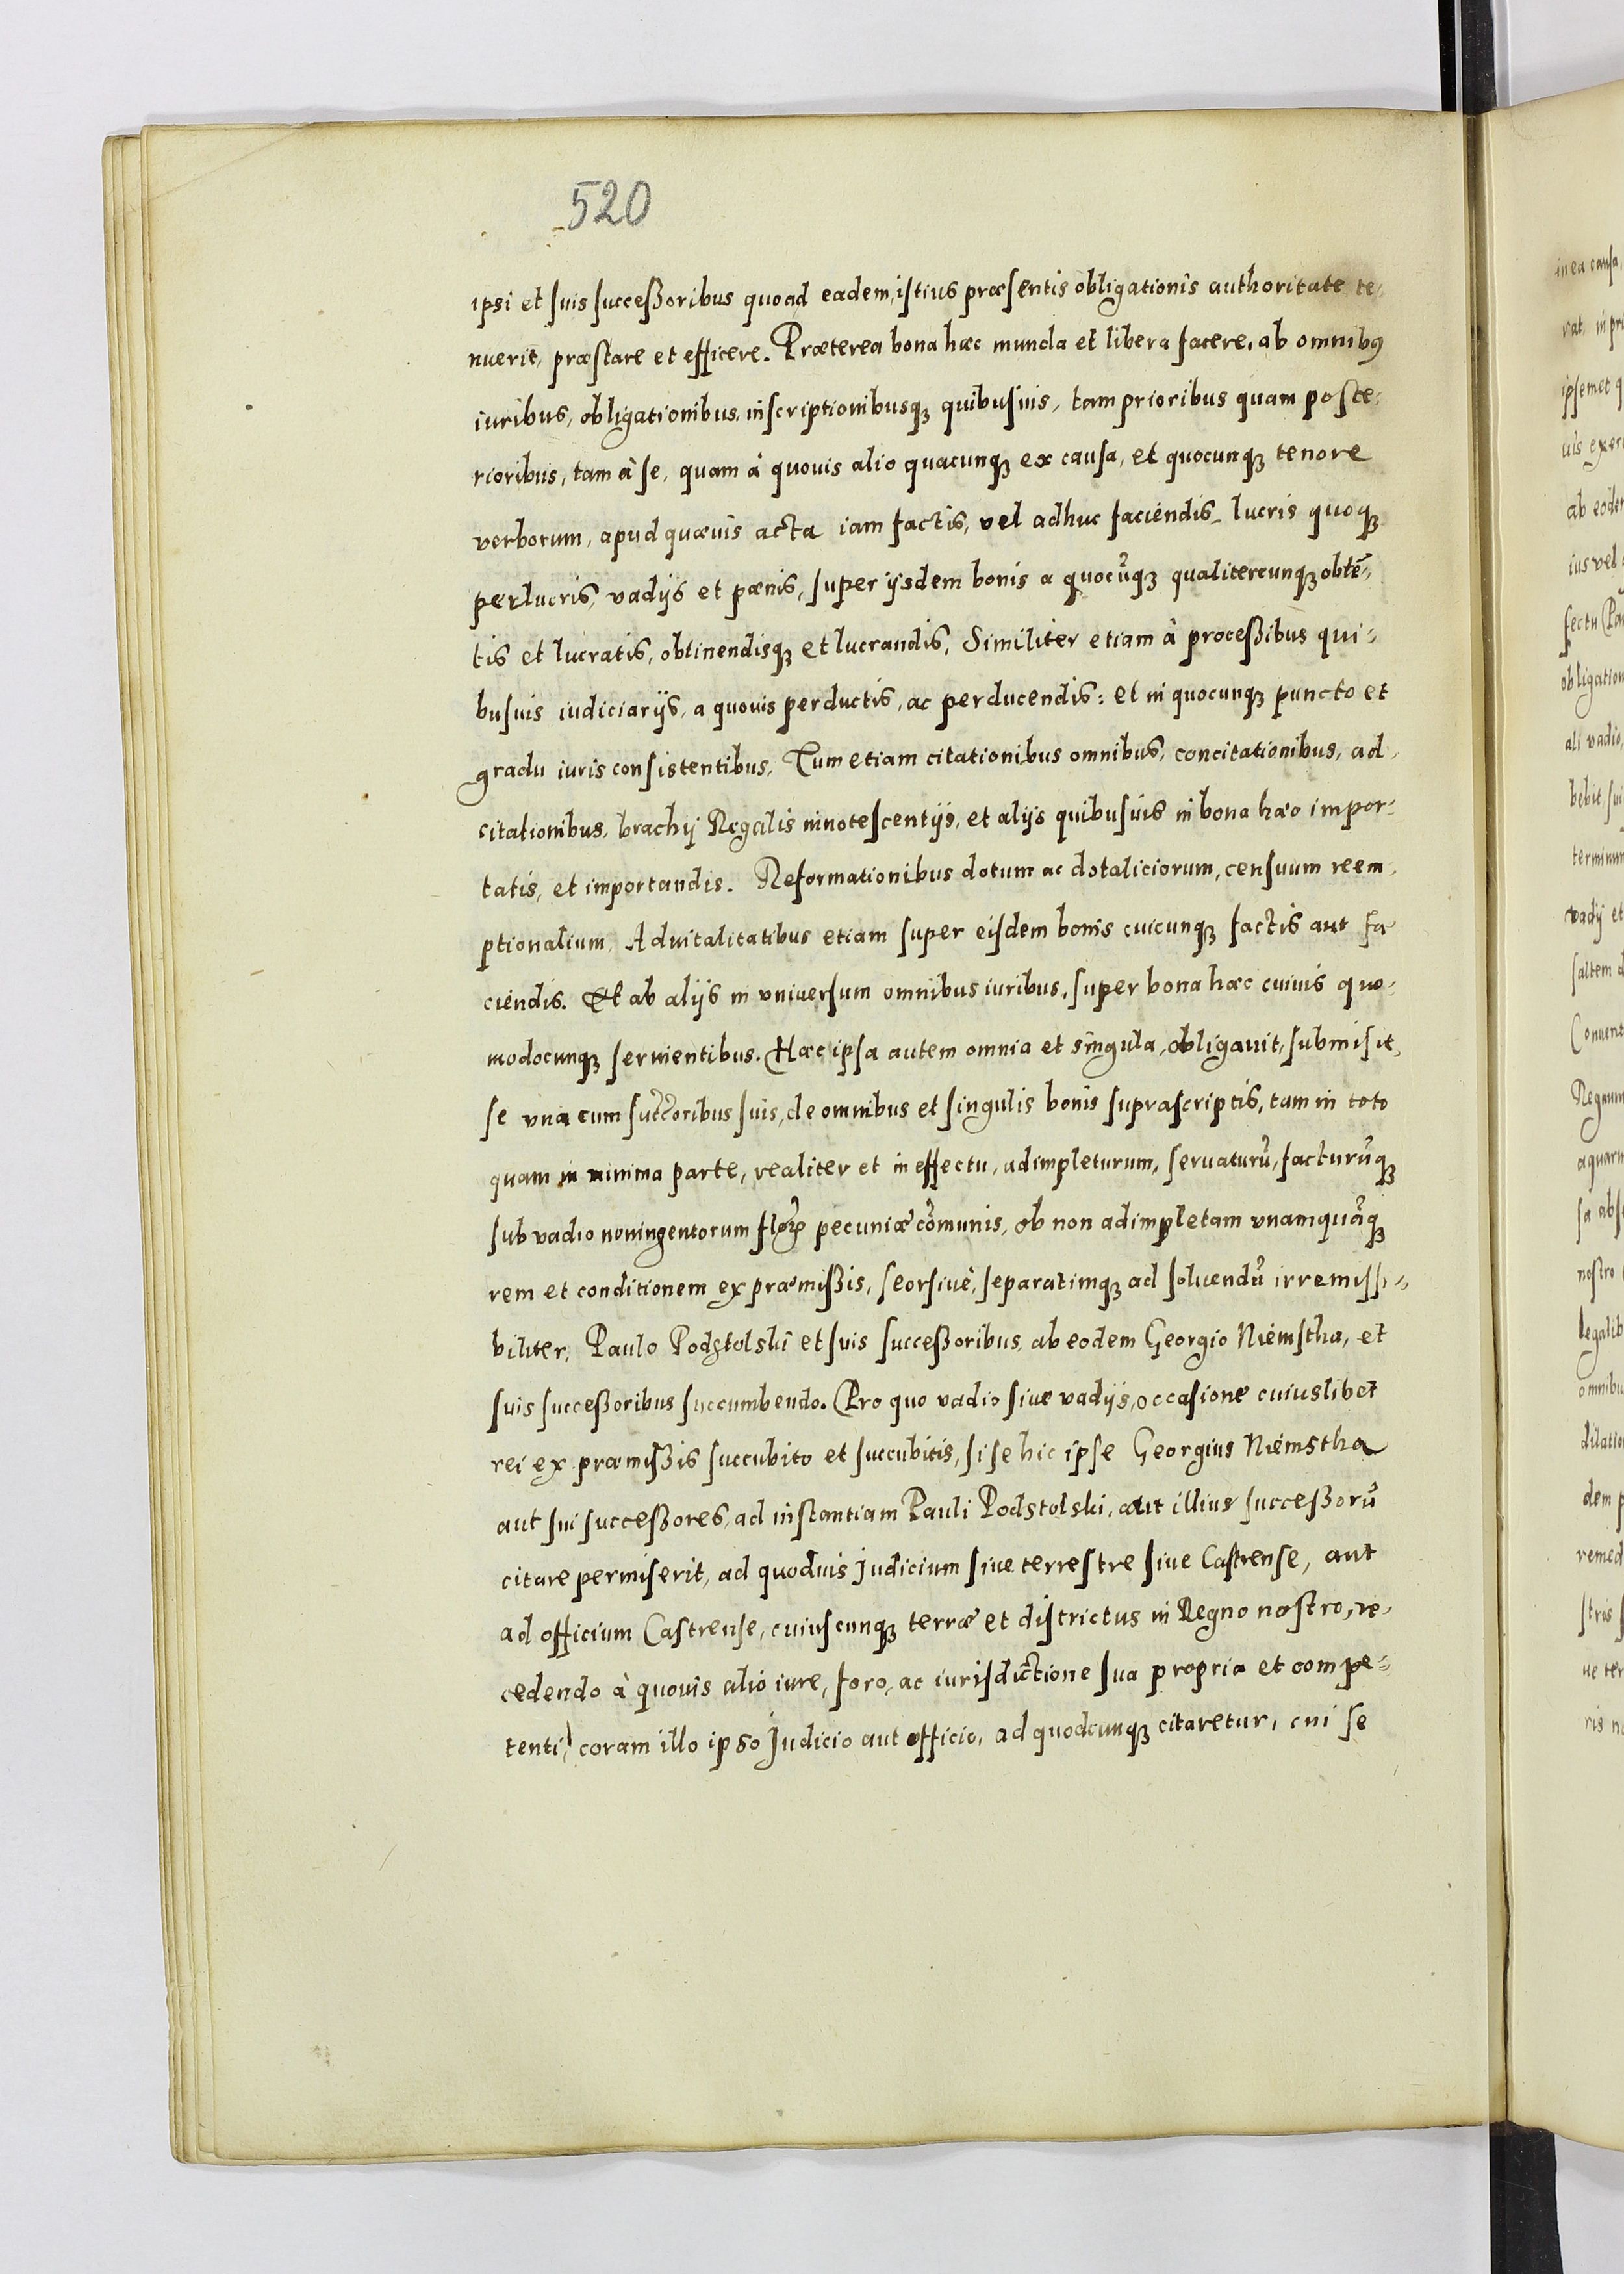 520
ipsi et suis successoribus quoad eadem, istius præsentis obligationis authoritate te-
nuerit, præstare et efficere. Præterea bona hæc munda et libera facere, ab omnibus
iuribus, obligationibus, inscriptionibusqꝫ quibusuis, tam prioribus quam poste-
rioribus, tam à se, quam à quouis alio quacunqꝫ ex causa, et quocunqꝫ tenore
verborum, apud quæuis acta iam factis, vel adhuc faciendis, lucris quoqꝫ
perlucris, vadijs et pœnis, super ijsdem bonis a quocūqꝫ qualitercunqꝫ obtē-
tis et lucratis, obtinendisqꝫ et lucrandis, Similiter etiam à processibus qui-
busuis iudiciarijs, a quouis perductis, ac perducendis: et in quocunqꝫ puncto et
gradu iuris consistentibus, Tum etiam citationibus omnibus, concitationibus, ad-
citationibus, brachij Regalis innotescentijs, et alijs quibusuis in bona hæc impor-
tatis, et importandis. Reformationibus dotum ac dotaliciorum, censuum reem-
ptionalium, Aduitalitatibus etiam super eisdem bonis cuicunqꝫ factis aut fa-
ciendis. Et ab alijs in vniuersum omnibus iuribus, super bona hæc cuiuis quo-
modocunqꝫ seruientibus. Hæc ipsa autem omnia et singula, obligauit, submisit,
se vna cum succōribus suis, de omnibus et singulis bonis suprascriptis, tam in toto
quam in minima parte, realiter et in effectu, adimpleturum, seruaturū, facturūqꝫ
sub vadio noningentorum florꝫ pecuniæ cōmunis, ob non adimpletam vnamquāqꝫ
rem et conditionem ex præmissis, seorsiue, separatimqꝫ ad soluendū irremissi-
biliter, Paulo Podstolski et suis successoribus, ab eodem Georgio Niemstha, et
suis successoribus succumbendo. Pro quo vadio siue vadijs, occasione cuiuslibet
rei ex præmissis succubito et succubitis, si se hic ipse Georgius Niemstha
aut sui successores, ad instantiam Pauli Podstolski, aut illius successorū
citare permiserit, ad quoduis Judicium siue terrestre siue Castrense, aut
ad officium Castrense, cuiuscunqꝫ terræ et districtus in Regno nostro, re-
cedendo à quouis alio iure, foro, ac iurisdictione sua propria et compe-
tenti, coram illo ipso Judicio aut officio, ad quodcunqꝫ citaretur, cui se